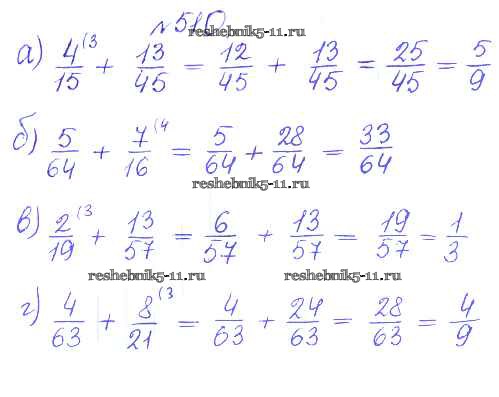 №510
reshebnik5-11.ru
а) 4/15 (3 + 13/45 = 12/45 + 13/45 = 25/45 = 5/9
б) 5/64 + 7/16 (4 = 5/64 + 28/64 = 33/64
reshebnik5-11.ru
в) 2/19 (3 + 13/57 = 6/57 + 13/57 = 19/57 = 1/3
reshebnik5-11.ru reshebnik5-11.ru
г) 4/63 + 8/21 (3 = 4/63 + 24/63 = 28/63 = 4/9